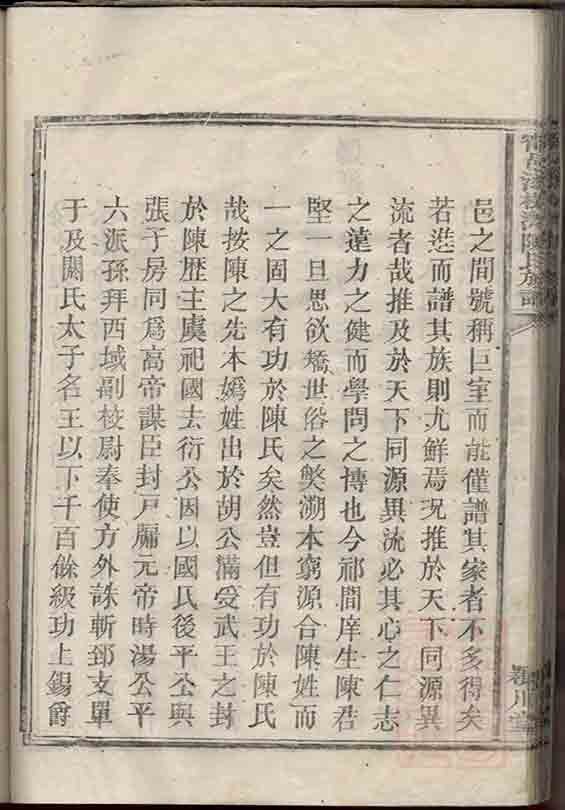 邑之間號稱巨室而能僅譜其家者不多得矣
若遠而譜其族則尤鮮焉况推於天下同源異
流者哉推及於天下同源異流必其心之仁志
之遠力之健而學問之博也今祁間庠生陳君
堅一旦思欲矯世俗之獘溯本窮源合陳姓而
一之固大有功於陳氏矣然豈但有功於陳氏
哉按陳之先本嬀姓出於胡公滿受武王之封
於陳歷主虞祀國去衍公因以國氏後平公與
張子房同爲高帝謀臣封戸牖元帝時湯公平
六派孫拜西域副校尉奉使方外誅斬郅支單
于及閼氏太子名王以下千百餘級功上錫爵
陳氏族譜
潁川堂